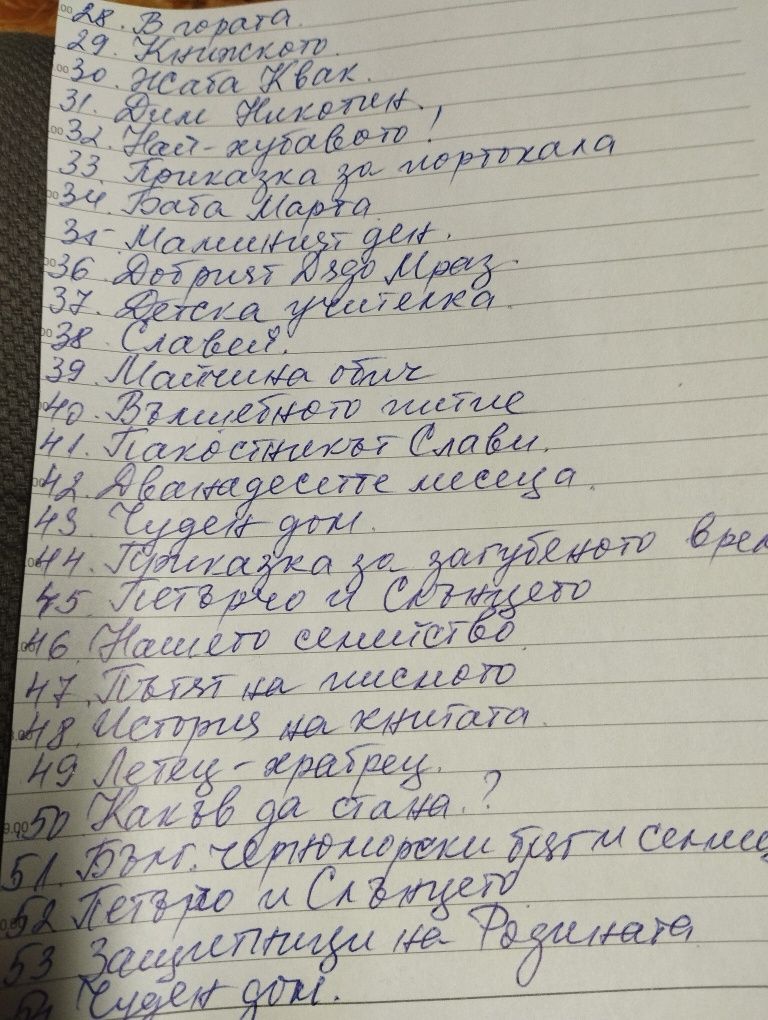 28. В гората.
29. Книжското.
30. Жаба Квак.
31. Дим Никотин.
32. Най-хубавото!
33. Приказка за портокала
34. Баба Марта
35 Маминият ден.
36 Добрият Дядо Мраз.
37. Детска учителка.
38. Славей.
39. Майчина обич
40. Вълшебното питие
41. Пакостникът Слави.
42. Дванадесетте месеца.
43. Чуден дом.
44. Приказка за загубеното
45. Петърчо и Слънцето
46. Нашето семейство
47. Пътят на писмото
48. История на книгата.
49 Летец-храбрец.
50 Какъв да стана.?
51. Бълг. черноморски бряг и
52 Петърчо и Слънцето
53 Защитници на Родината
54 Чуден дом.